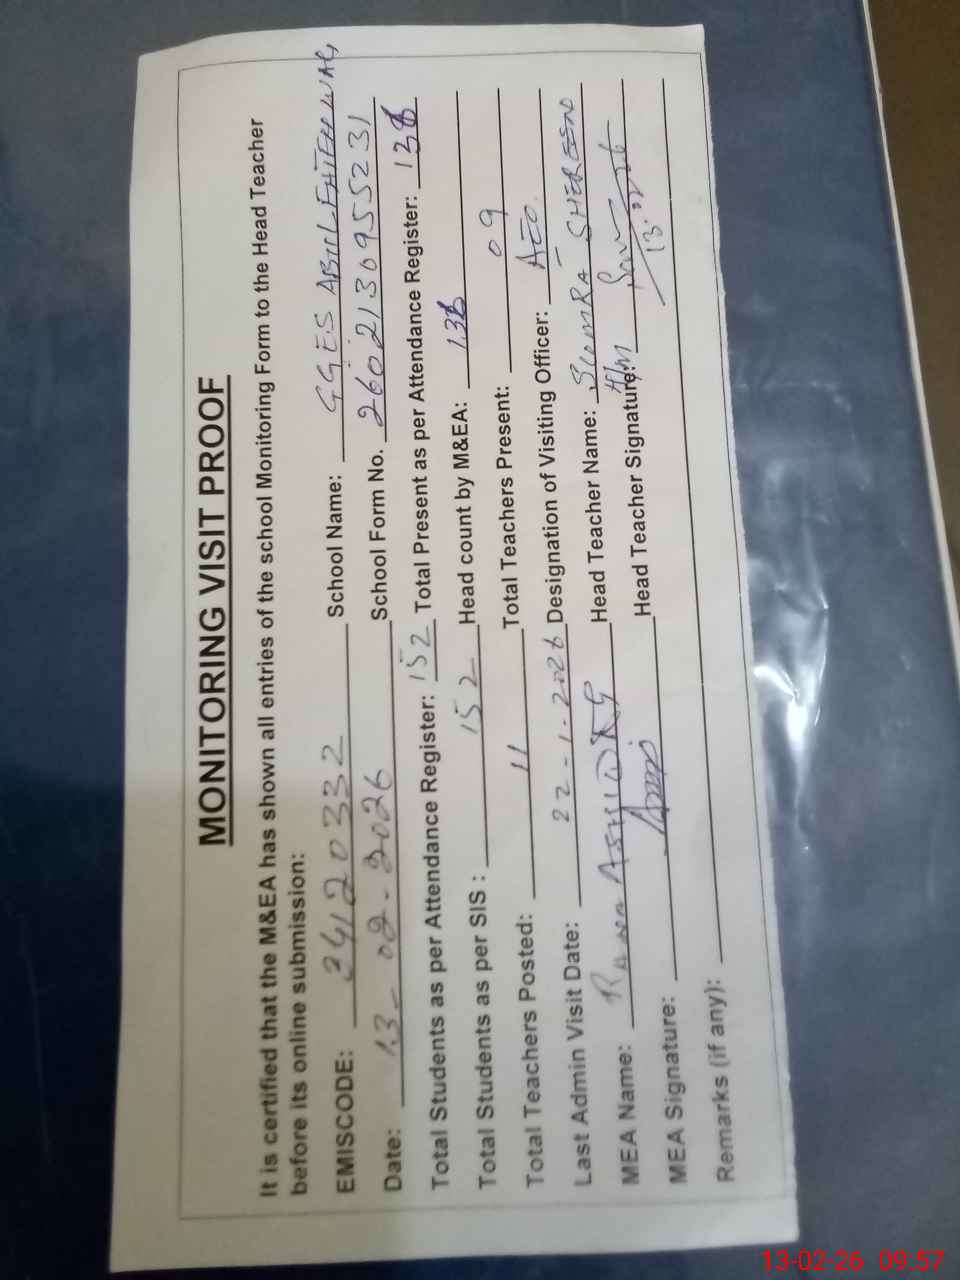 MONITORING VISIT PROOF
It is certified that the M&EA has shown all entries of the school Monitoring Form to the Head Teacher
before its online submission:
EMISCODE: 34120332 School Name: GGES
Date: 13-02-2026 School Form No. 2602130955231
Total Students as per Attendance Register: 152 Total Present as per Attendance Register: 138
Total Students as per SIS : 152 Head count by M&EA: 138
Total Teachers Posted: 11 Total Teachers Present: 09
Last Admin Visit Date: 22-1-2026 Designation of Visiting Officer: AEO.
MEA Name: Rana Head Teacher Name:
MEA Signature: Head Teacher Signature: H/M 13.02.26
Remarks (if any):
13-02-26 09:57